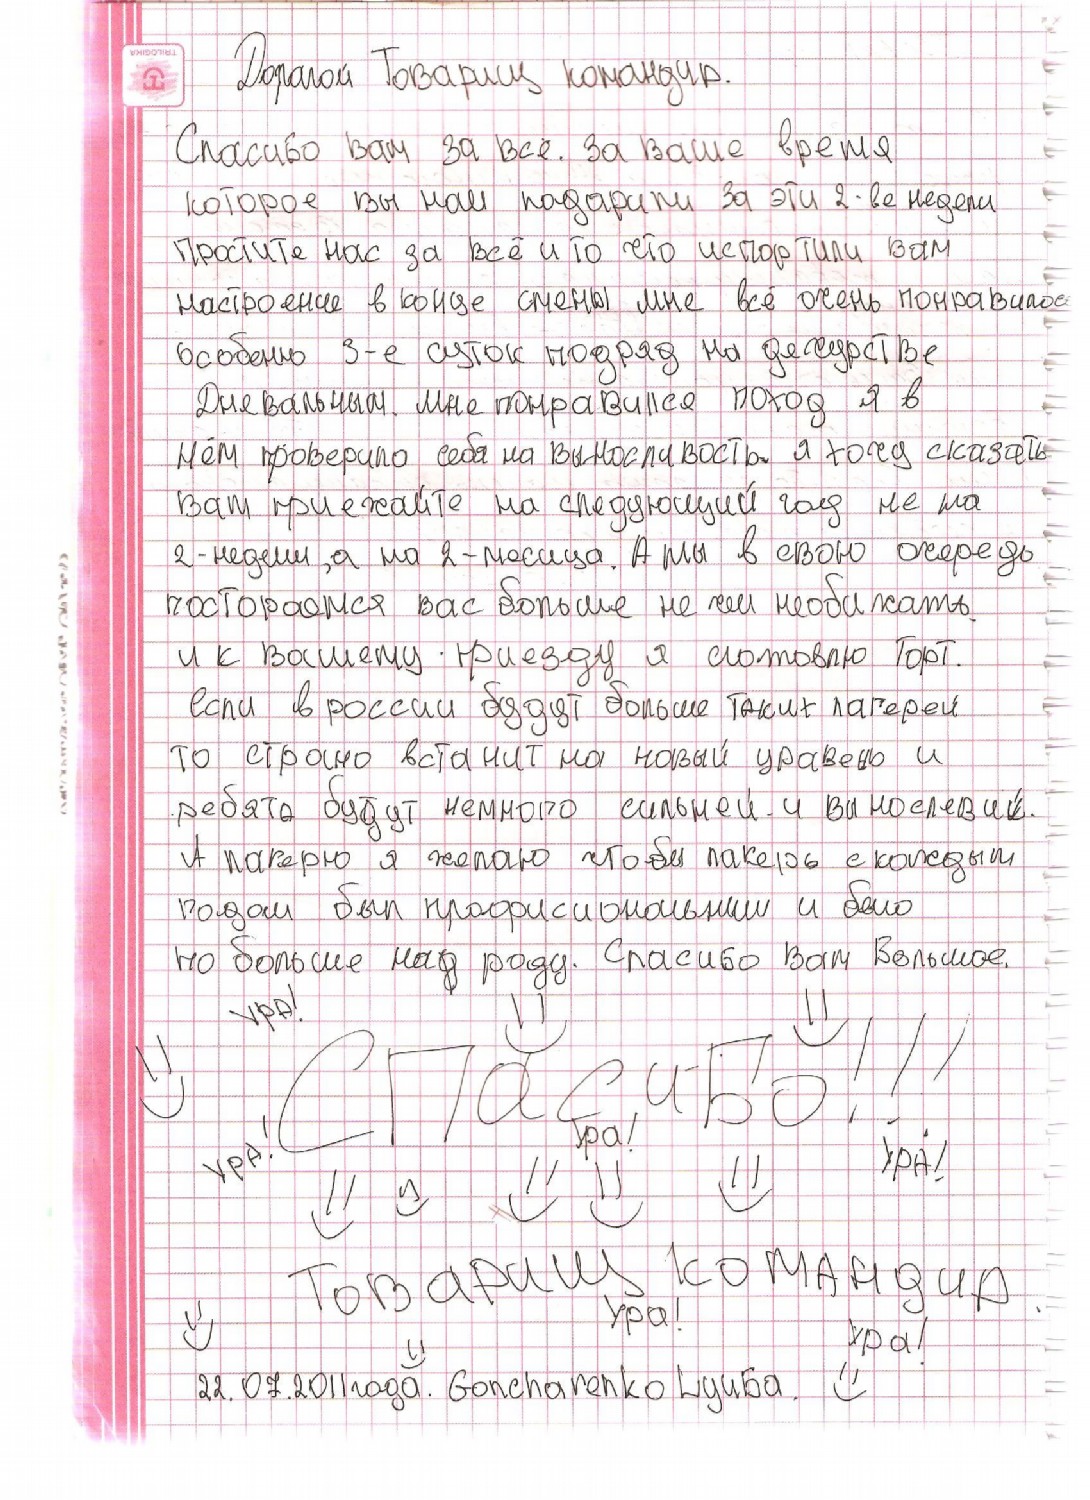 TRILOGIKA
Дорагой Товарищ командир.
Спасибо вам за всё. за ваше время
которое вы нам подарили за эти 2-ве недели
простите нас за всё и то что испортили вам
настроение в конце смены мне всё очень понравилос
особенно 3-е суток подряд на дежурстве
Дневальным. мне понравился поход я в
нём проверило себя на выносливость. я хочу сказать
вам приежайте на следующий год не на
2-недели, а на 2-месяца. А мы в свою очередь
посторается вас больше не чем необижать.
и к вашему приезду я сготовлю Торт.
если в россии будут больше таких лагерей
то страно встанит на новый уравень и
ребята будут немного сильней и выносливий.
А лагерю я желаю чтобы лагерь с каждым
годом был профисиональним и было
по больше народу. Спасибо Вам Большое.
Ура!
СПАСИБО!!!
Ура!
Ура!
Ура!
Товарищ командир.
Ура!
Ура!
22.07.2011 года. Goncharenko Lyuba.